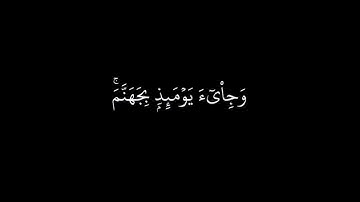 وَجِا۟ىٓءَ يَوۡمَئِذِۭ بِجَهَنَّمَۚ